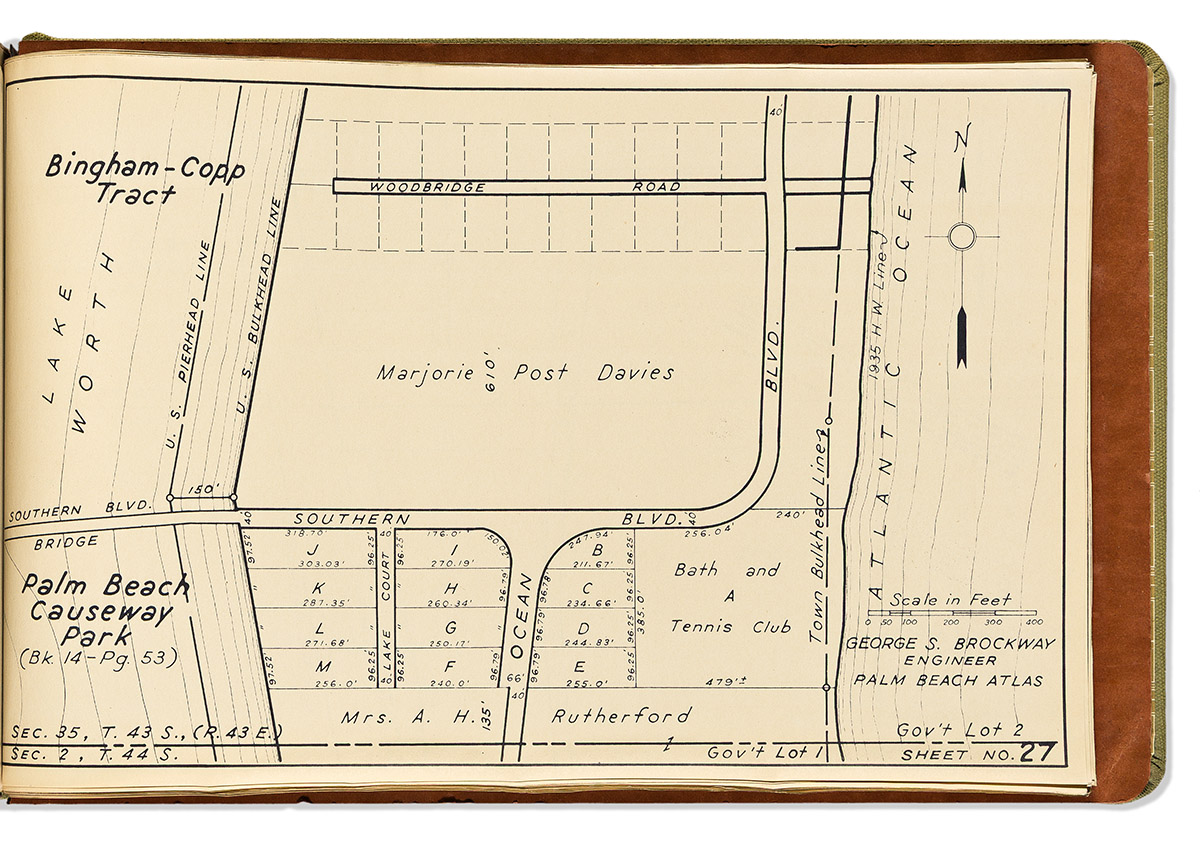 40'
Bingham-Copp
Tract
WOODBRIDGE ROAD
N
LAKE
WORTH
U. S. PIERHEAD LINE
U. S. BULKHEAD LINE
Marjorie Post Davies
610'
BLVD.
Town Bulkhead Line
1935 H W Line
ATLANTIC OCEAN
150'
SOUTHERN BLVD.
BRIDGE
40'
SOUTHERN BLVD.
40'
240'
318.70'
40'
176.0'
150.02'
247.94'
256.04'
97.52'
J
303.03'
96.25'
96.25'
I
270.19'
B
211.67'
96.25'
K
287.35'
H
260.34'
96.79'
96.78'
C
234.66'
96.25'
L
271.68'
G
250.17'
96.79'
D
244.83'
96.25'
M
256.0'
97.52'
96.25'
96.25'
F
240.0'
96.79'
96.79'
E
255.0'
96.25'
LAKE COURT
40'
OCEAN
66'
40'
385.0'
Bath and
A
Tennis Club
479'±
Palm Beach
Causeway
Park
(Bk. 14-Pg. 53)
Scale in Feet
0 50 100 200 300 400
GEORGE S. BROCKWAY
ENGINEER
PALM BEACH ATLAS
Mrs. A. H. Rutherford
135'
SEC. 35, T. 43 S., (R. 43 E.)
SEC. 2, T. 44 S.
Gov't Lot 1
Gov't Lot 2
SHEET NO. 27